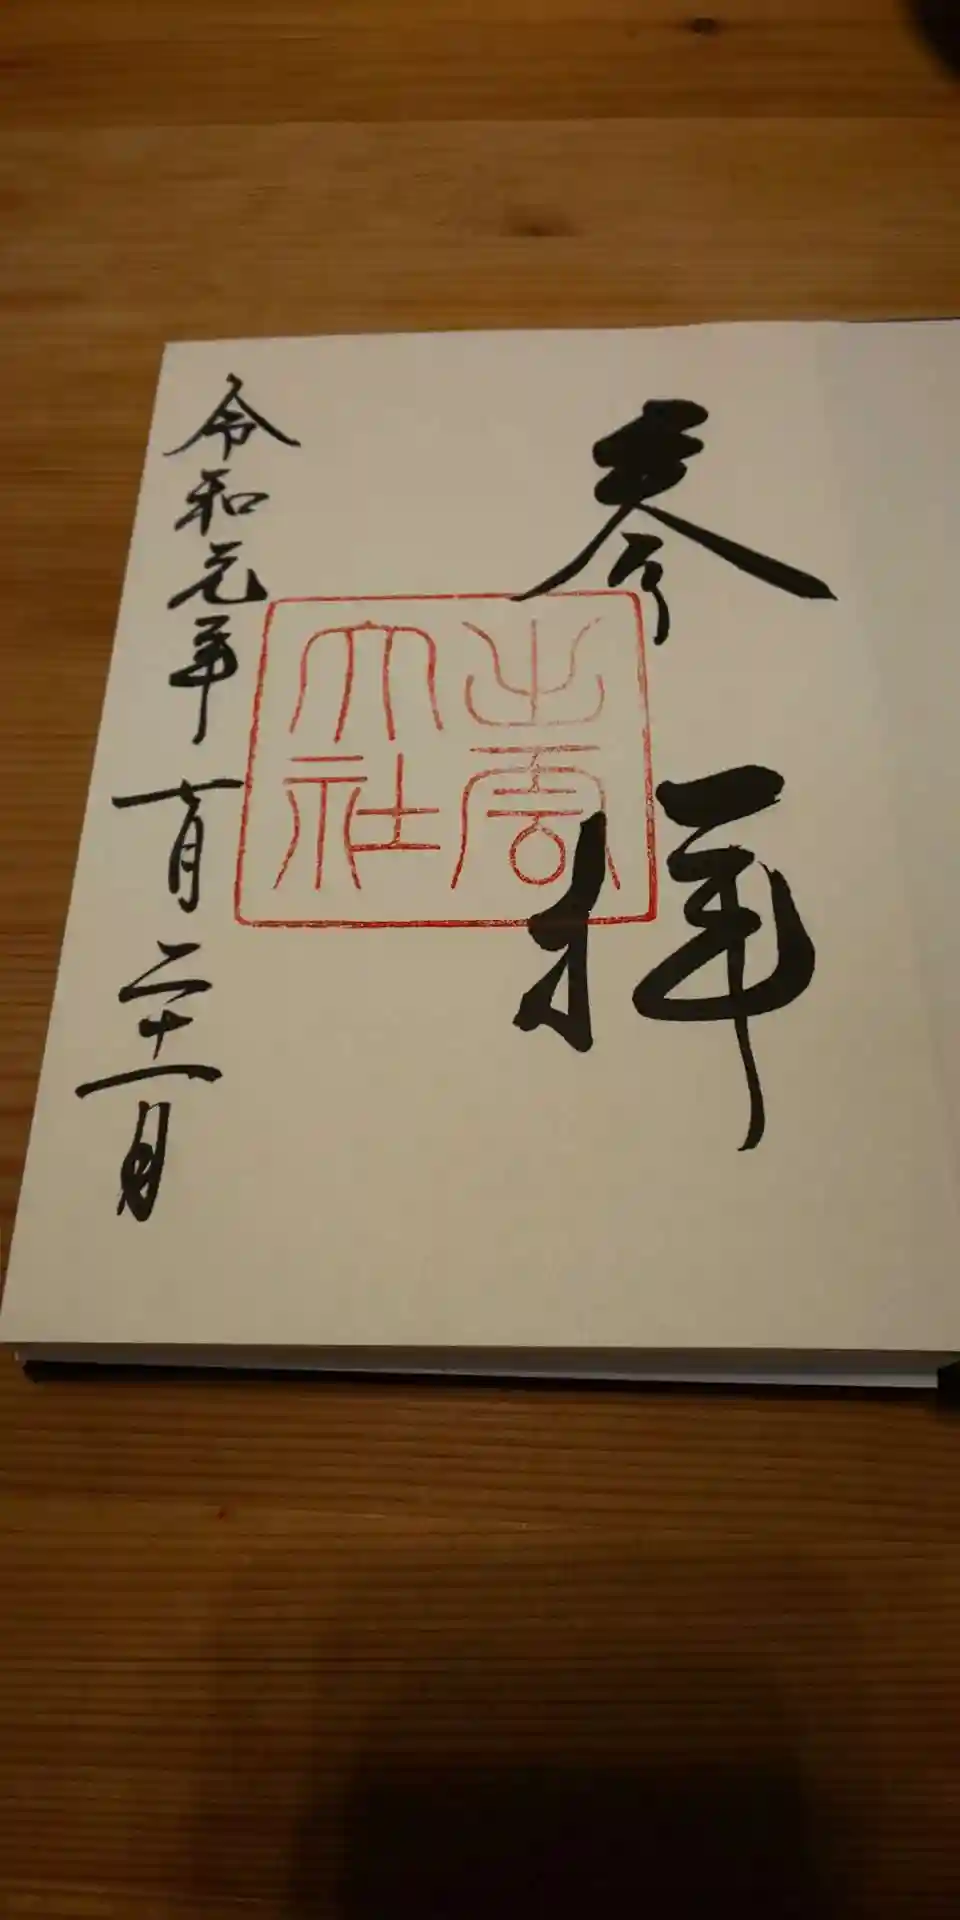 参拝
出雲
大社
令和元年十月二十一日